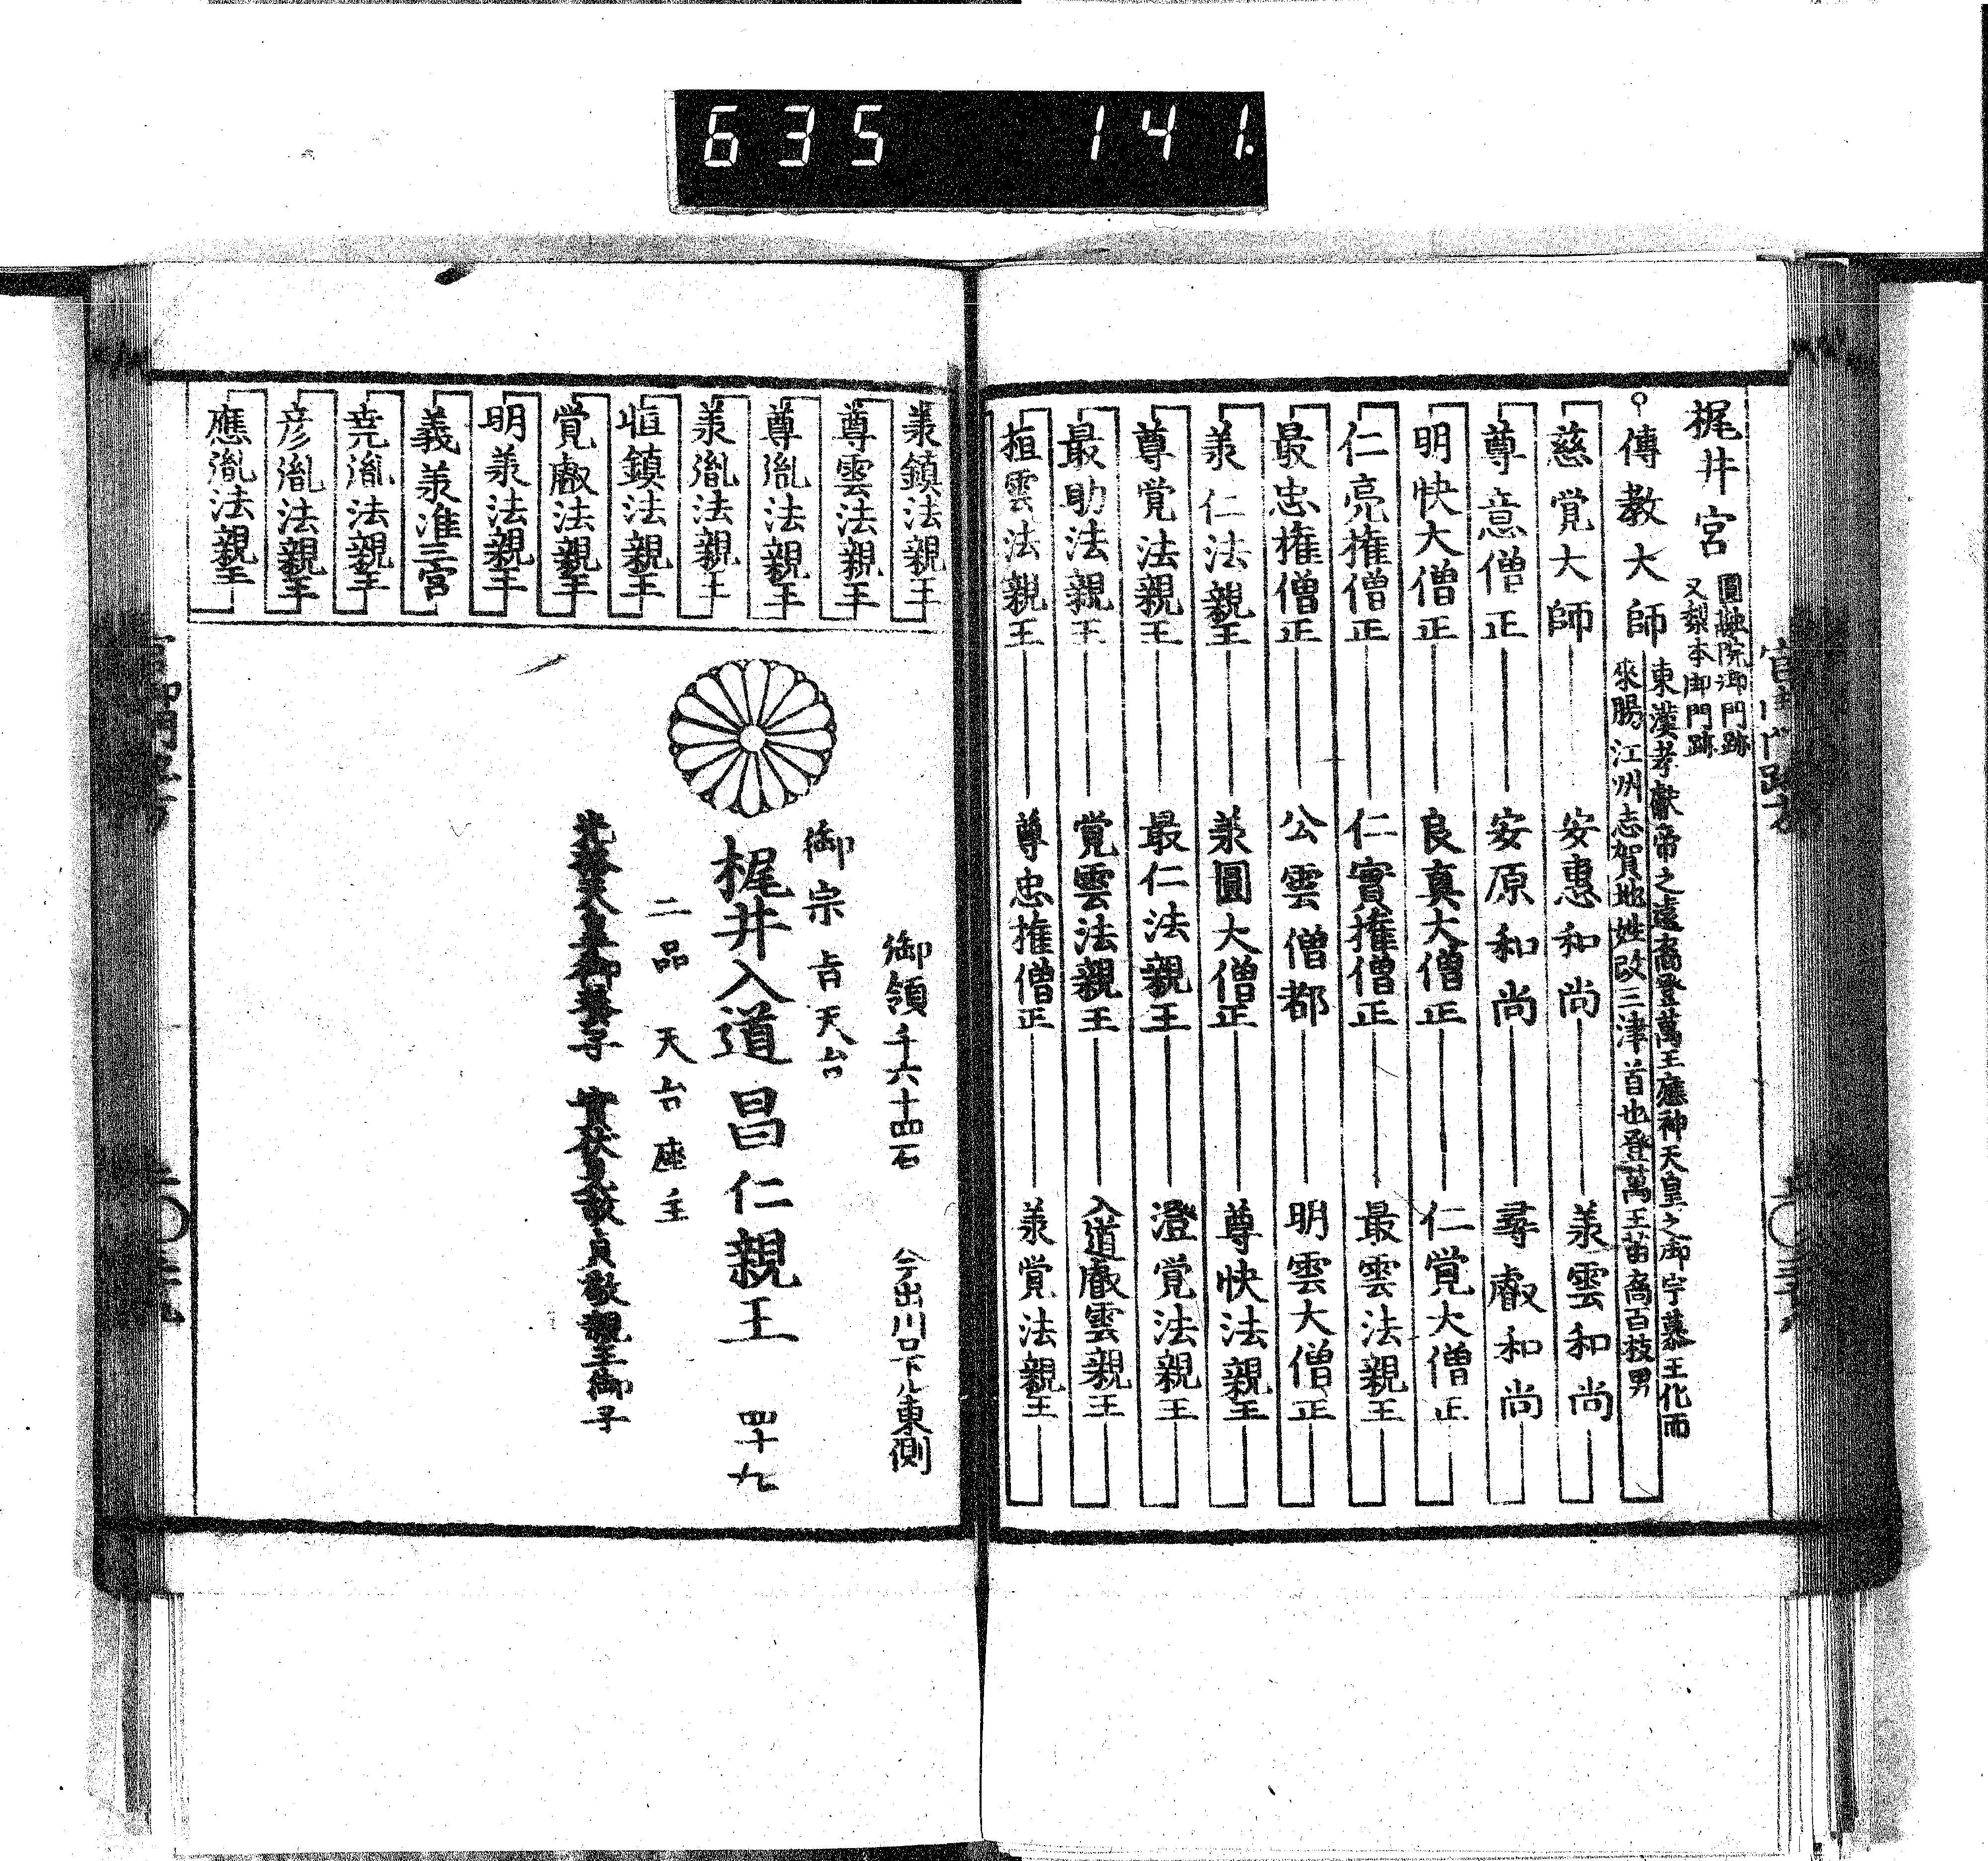 635 141.
梶井宮
圓融院御門跡
又梨本御門跡
傳教大師
東漢孝献帝之遠裔登萬王應神天皇之御宇慕王化而
來賜江州志賀地姓改三津首也登萬王苗裔百枝男
慈覚大師 安惠和尚 羕雲和尚
尊意僧正 安原和尚 尋叡和尚
明快大僧正 良真大僧正 仁覚大僧正
仁亮権僧正 仁實権僧正 最雲法親王
最忠権僧正 公雲僧都 明雲大僧正
羕仁法親王 羕圓大僧正 尊快法親王
尊覚法親王 最仁法親王 澄覚法親王
最助法親王 覚雲法親王 入道叡雲親王
桓雲法親王 尊忠権僧正 羕覚法親王
羕鎮法親王
尊雲法親王
尊胤法親王
羕胤法親王
恒鎮法親王
覚叡法親王
明羕法親王
義羕准三宮
尭胤法親王
彦胤法親王
應胤法親王
御領千六十四石 今出川口下ル東側
御宗旨天台
梶井入道昌仁親王 四十九
二品 天台座主
光格天皇御養子 實伏見故貞敬親王御子